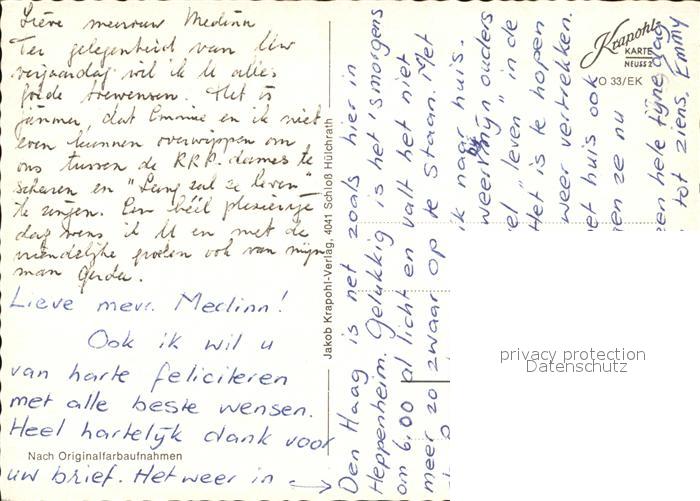 Lieve mevrouw Medinn
Ter gelegenheid van Uw
verjaardag wil ik U alles
goede toewensen. Het is
jammer, dat Emmie en ik niet
even kunnen overwippen om
ons tussen de R.R.P. dames te
scharen en "Lang zal ze leven"
te zingen. Een héél plezierige
dag wens ik U en met de
vriendelijke groeten ook van mijn
man Gerda.
Lieve mevr. Medinn!
Ook ik wil u
van harte feliciteren
met alle beste wensen.
Heel hartelijk dank voor
Nach Originalfarbaufnahmen
uw brief. Het weer in →
Jakob Krapohl-Verlag, 4041 Schloß Hülchrath
Den Haag is net zoals hier in
Heppenheim. Gelukkig is het 'smorgens
om 6.00 al licht en valt het niet
meer zo zwaar op te staan. Met
ik naar huis.
weer mijn ouders
el "leven" in de
Het is te hopen
weer vertrekken.
et huis ook
en ze nu
een hele fijne dag
tot ziens, Emmy
Krapohl
KARTE
NEUSS 2
O 33/EK
privacy protection
Datenschutz